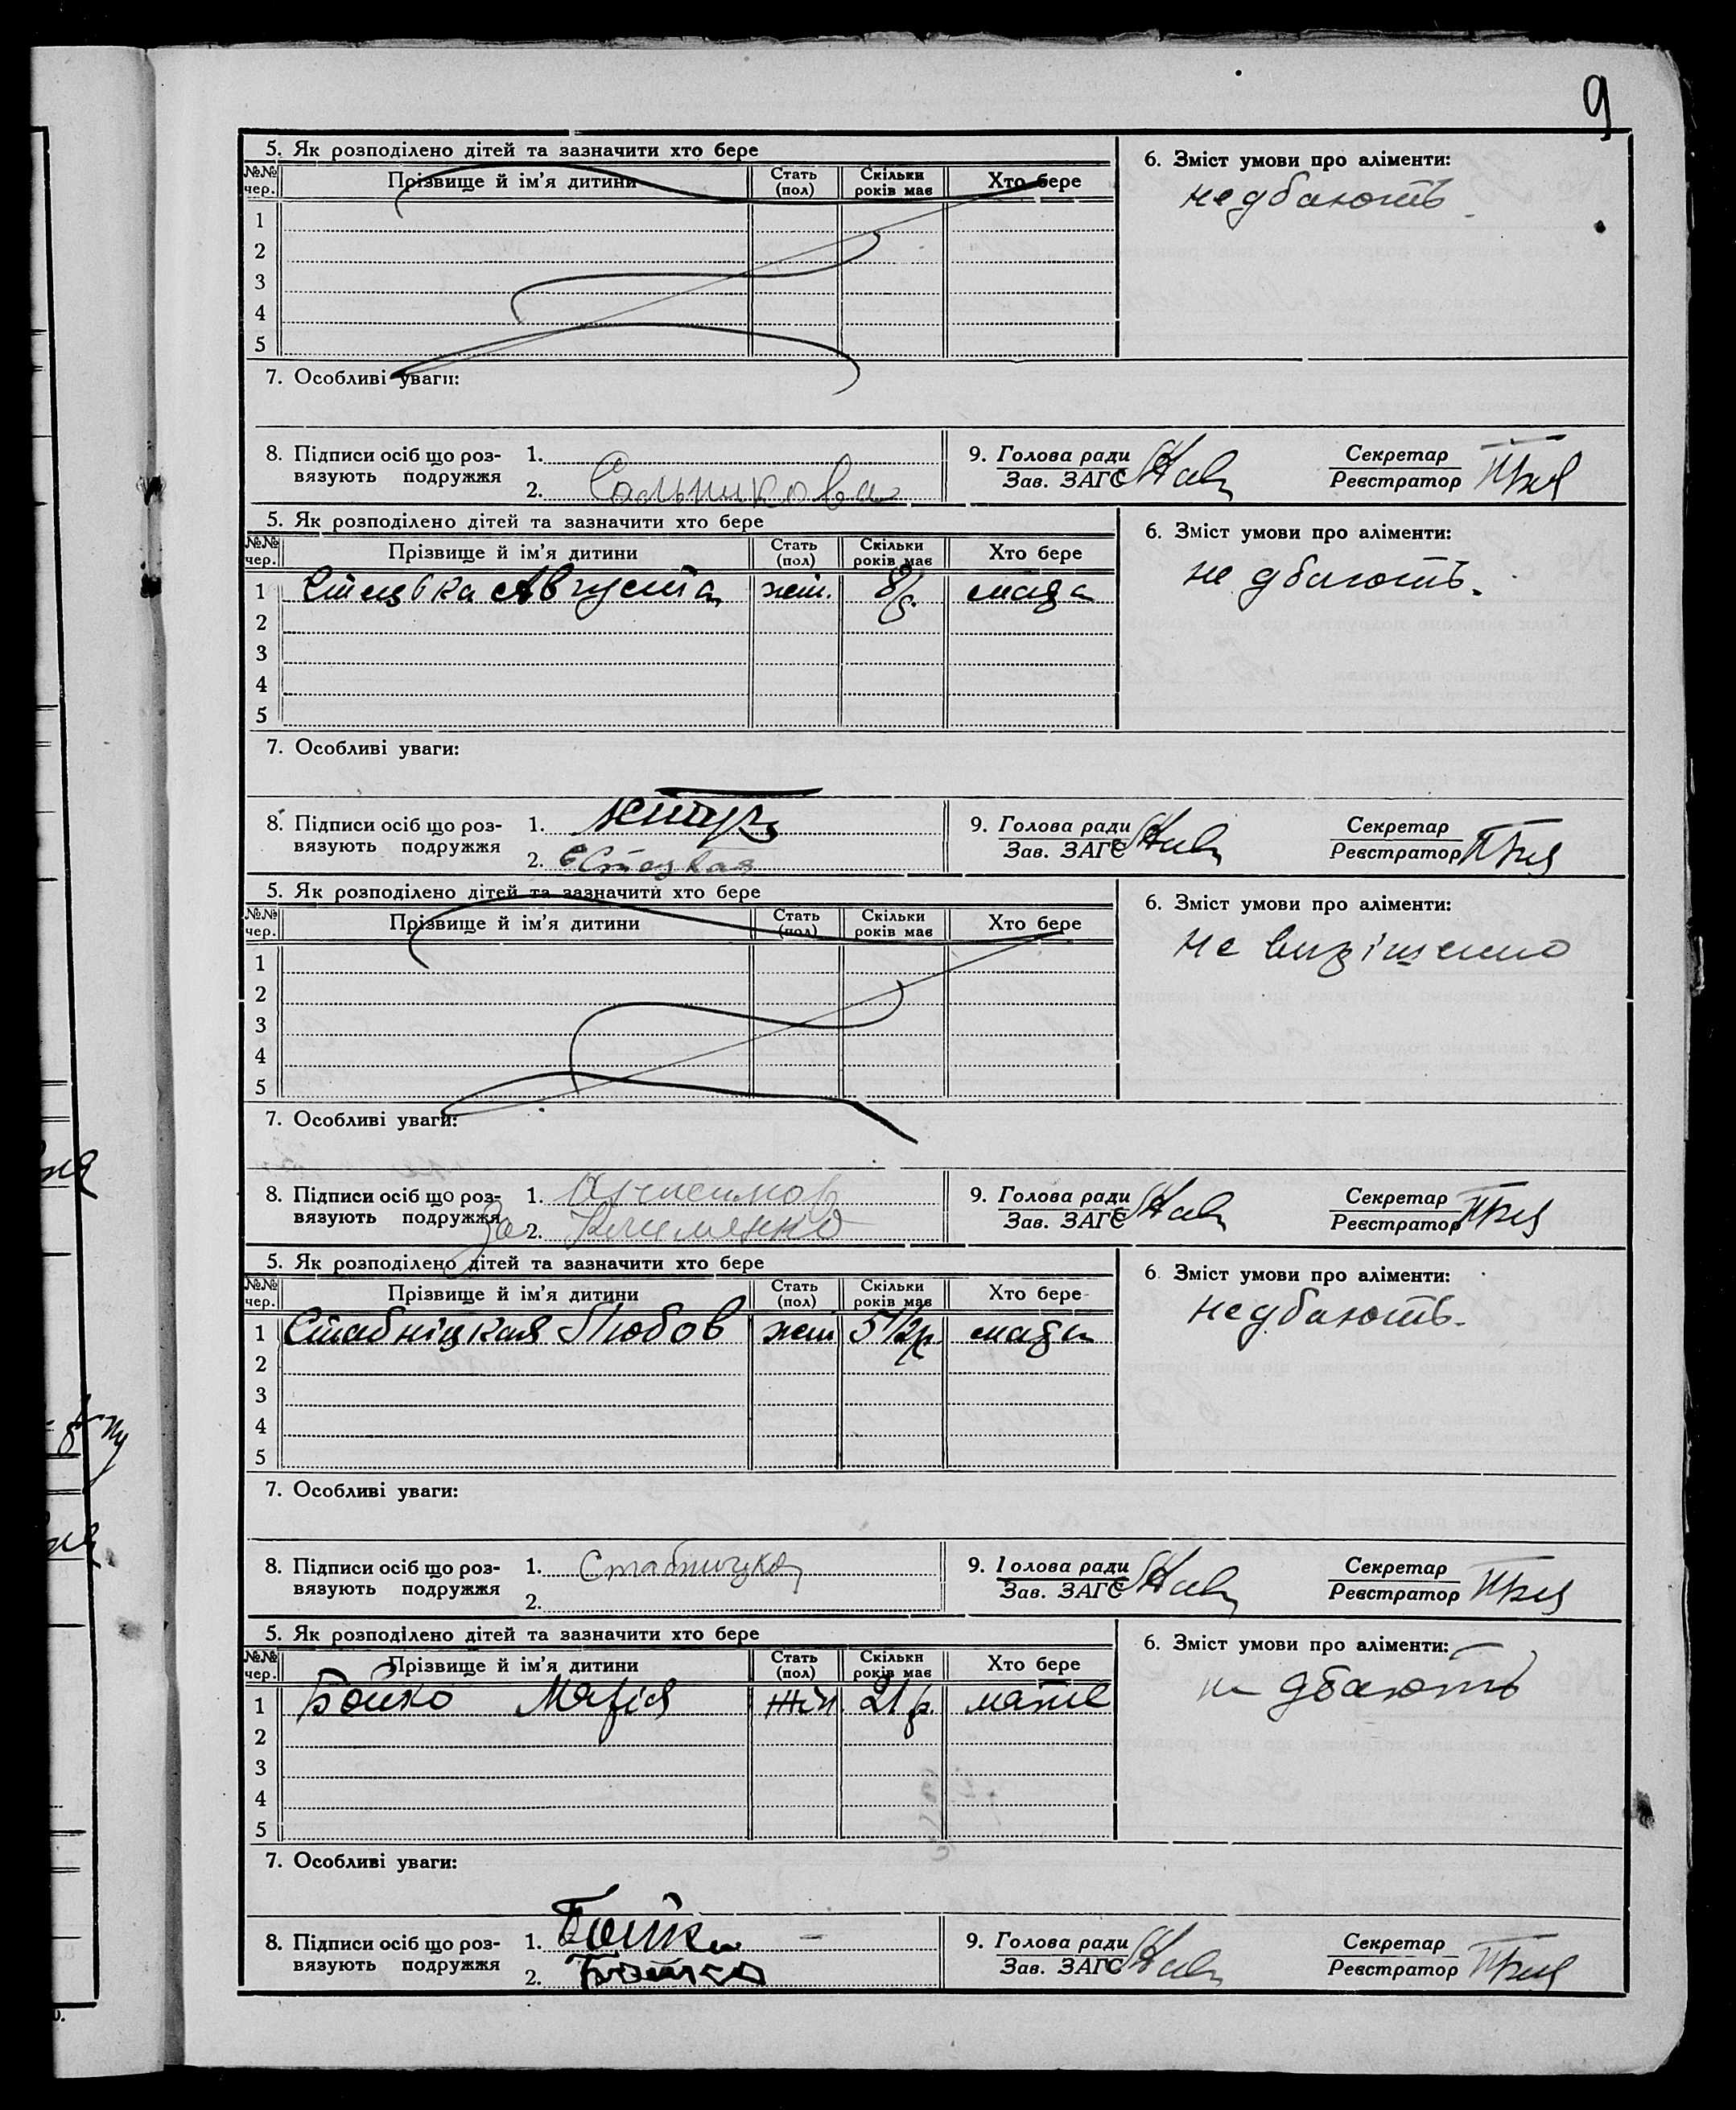 9
5. Як розподілено дітей та зазначити хто бере
6. Зміст умови про аліменти:
№№ чер. Прізвище й ім'я дитини Стать (пол) Скільки років має Хто бере
не дбають
1
2
3
4
5
7. Особливі уваги:
8. Підписи осіб що роз-вязують подружжя
1.
2. Сальникова
9. Голова ради Зав. ЗАГС
Секретар Реєстратор
5. Як розподілено дітей та зазначити хто бере
6. Зміст умови про аліменти:
№№ чер. Прізвище й ім'я дитини Стать (пол) Скільки років має Хто бере
не дбають.
1 Августа жін.
2
3
4
5
7. Особливі уваги:
8. Підписи осіб що роз-вязують подружжя
1.
2. Стецкая
9. Голова ради Зав. ЗАГС
Секретар Реєстратор
5. Як розподілено дітей та зазначити хто бере
6. Зміст умови про аліменти:
№№ чер. Прізвище й ім'я дитини Стать (пол) Скільки років має Хто бере
не вирішено
1
2
3
4
5
7. Особливі уваги:
8. Підписи осіб що роз-вязують подружжя
1.
За 2. Клименко
9. Голова ради Зав. ЗАГС
Секретар Реєстратор
5. Як розподілено дітей та зазначити хто бере
6. Зміст умови про аліменти:
№№ чер. Прізвище й ім'я дитини Стать (пол) Скільки років має Хто бере
не дбають.
1 Стабніцкая Любов жін 5 1/2 р.
2
3
4
5
7. Особливі уваги:
8. Підписи осіб що роз-вязують подружжя
1. Стабницка
2.
9. Голова ради Зав. ЗАГС
Секретар Реєстратор
5. Як розподілено дітей та зазначити хто бере
6. Зміст умови про аліменти:
№№ чер. Прізвище й ім'я дитини Стать (пол) Скільки років має Хто бере
не дбають
1 Бойко Марія жін 21 р.
2
3
4
5
7. Особливі уваги:
8. Підписи осіб що роз-вязують подружжя
1. Бойко
2. Бойко
9. Голова ради Зав. ЗАГС
Секретар Реєстратор